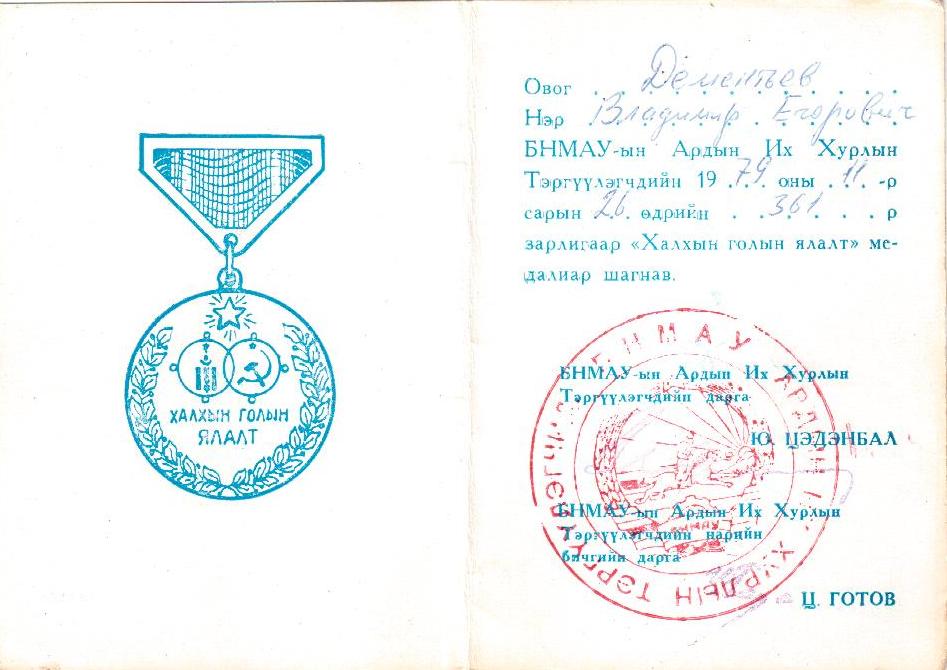 ХАЛХЫН ГОЛЫН
ЯЛАЛТ
Овог . . Дементьев . .
Нэр . Владимир Егорович
БНМАУ-ын Ардын Их Хурлын
Тэргүүлэгчдийн 19 79 оны 11 -р
сарын 26 өдрийн . . 361 . . р
зарлигаар «Халхын голын ялалт» ме-
далиар шагнав.
БНМАУ-ын Ардын Их Хурлын
Тэргүүлэгчдийн дарга
Ю. ЦЭДЭНБАЛ
БНМАУ-ын Ардын Их Хурлын
Тэргүүлэгчдийн нарийн
бичгийн дарга
Ц. ГОТОВ
БНМАУ АРДЫН ИХ ХУРЛЫН ТЭРГҮҮЛЭГЧИД
БНМАУ